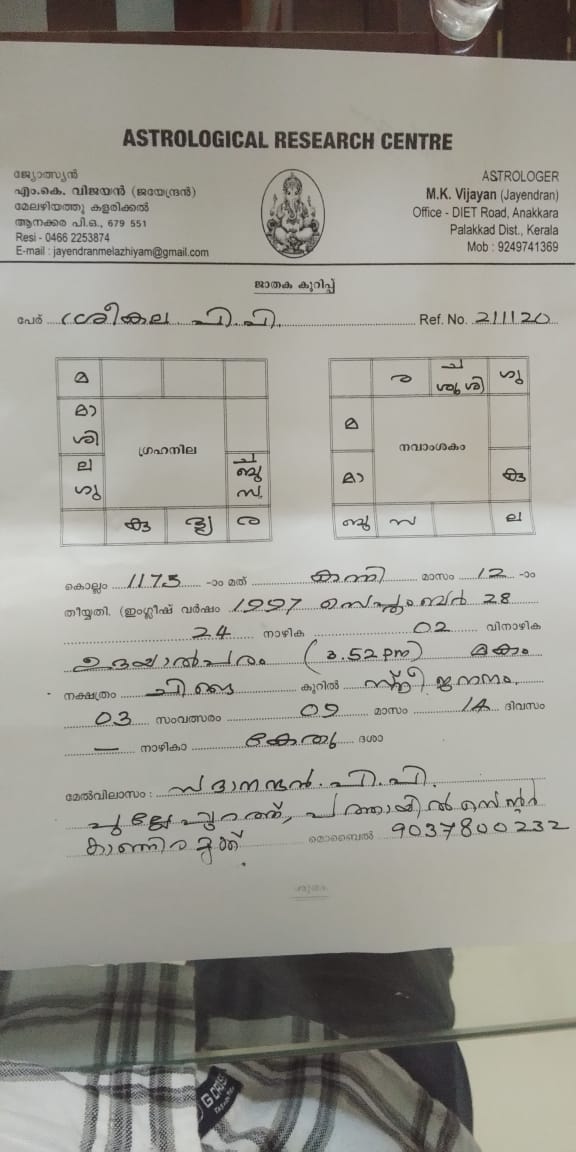 ASTROLOGICAL RESEARCH CENTRE
ജ്യോത്സ്യൻ
എം.കെ. വിജയൻ (ജയേന്ദ്രൻ)
മേലഴിയത്തു കളരിക്കൽ
ആനക്കര പി.ഒ., 679 551
Resi - 0466 2253874
E-mail : jayendranmelazhiyam@gmail.com
ASTROLOGER
M.K. Vijayan (Jayendran)
Office - DIET Road, Anakkara
Palakkad Dist., Kerala
Mob : 9249741369
ജാതക കുറിപ്പ്
പേര് ശ്രീകല പി.പി. Ref. No. 211120
മ
മാ
ശി
ല
ശു
ഗ്രഹനില
ച
ബു
സ
ര
ര
ച
ശു
മ
നവാംശകം
മാ
ബു സ ല
കൊല്ലം 1173 -ാം മത് കന്നി മാസം 12 -ാം
തീയ്യതി. (ഇംഗ്ലീഷ് വർഷം 1997 സെപ്റ്റംബർ 28
24 നാഴിക 02 വിനാഴിക
ഉദയാൽപരം (3.52 pm) മകം
നക്ഷത്രം ചിങ്ങ കൂറിൽ സ്ത്രീ ജനനം.
03 സംവത്സരം 09 മാസം 14 ദിവസം
— നാഴികാ കേതു ദശാ
മേൽവിലാസം : സദാനന്ദൻ. പി.പി.
മൊബൈൽ 9037800232
ശുഭം